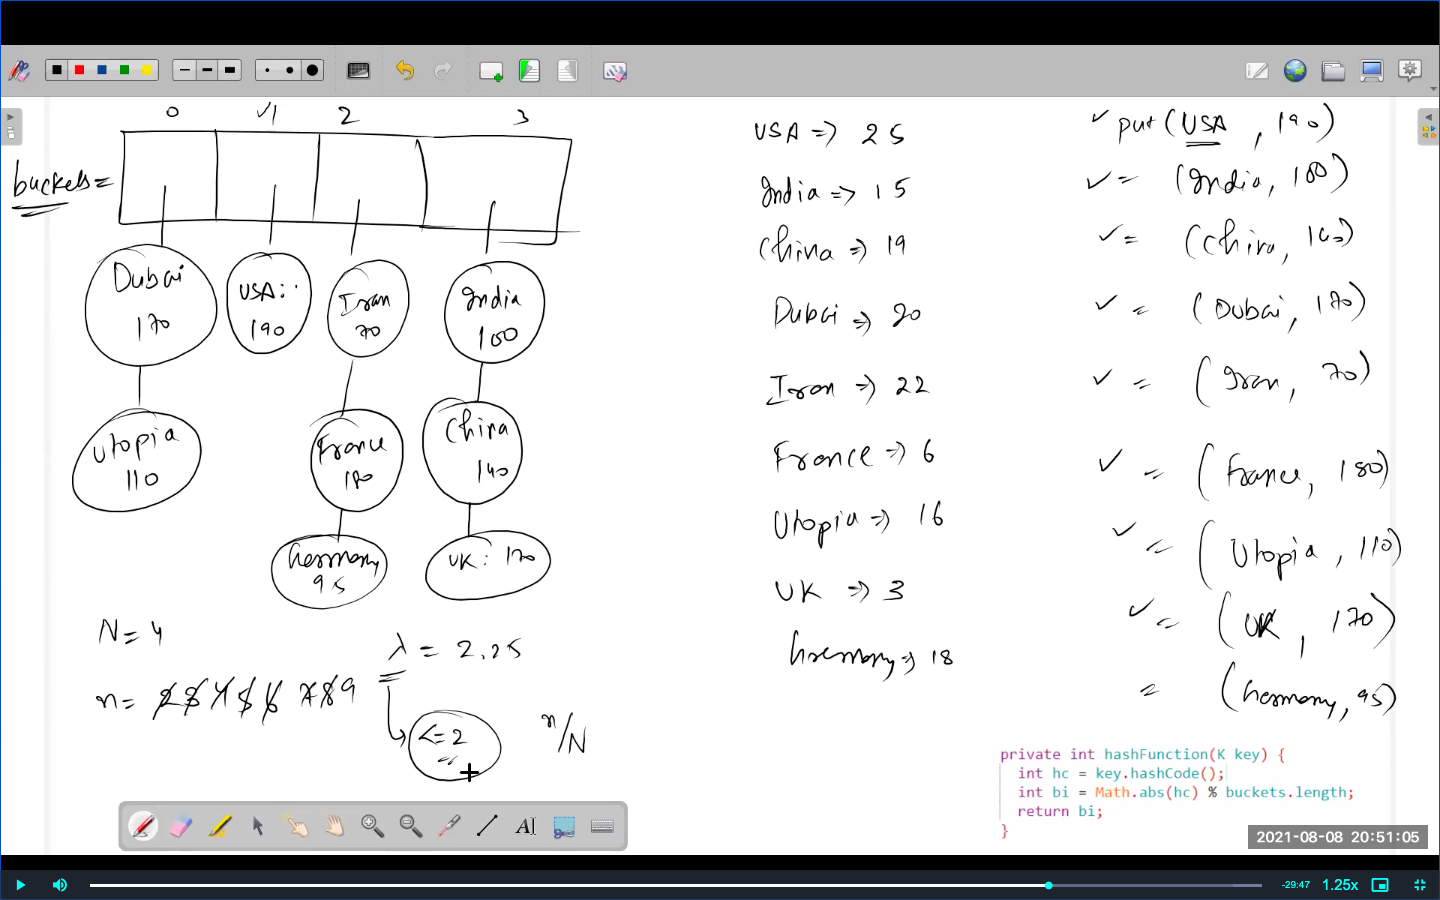 0 √1 2 3
buckets=
Dubai
170
USA:
190
Iran
70
India
100
Utopia
110
France
180
China
140
Germany
95
UK: 170
N= 4
λ = 2.25
n= 2 3 4 5 6 7 8 9
<=2
n/N
USA => 25
India => 15
China => 19
Dubai => 20
Iran => 22
France => 6
Utopia => 16
UK => 3
Germany => 18
✓ put (USA, 190)
✓ = (India, 100)
✓ = (China, 140)
✓ = (Dubai, 170)
✓ = (Iran, 70)
✓ = (France, 180)
✓ = (Utopia, 110)
✓ = (UK, 170)
= (Germany, 95)
private int hashFunction(K key) {
int hc = key.hashCode();
int bi = Math.abs(hc) % buckets.length;
return bi;
}
2021-08-08 20:51:05
-29:47 1.25x